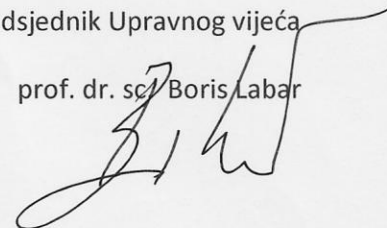 dsjednik Upravnog vijeća
prof. dr. sc. Boris Labar